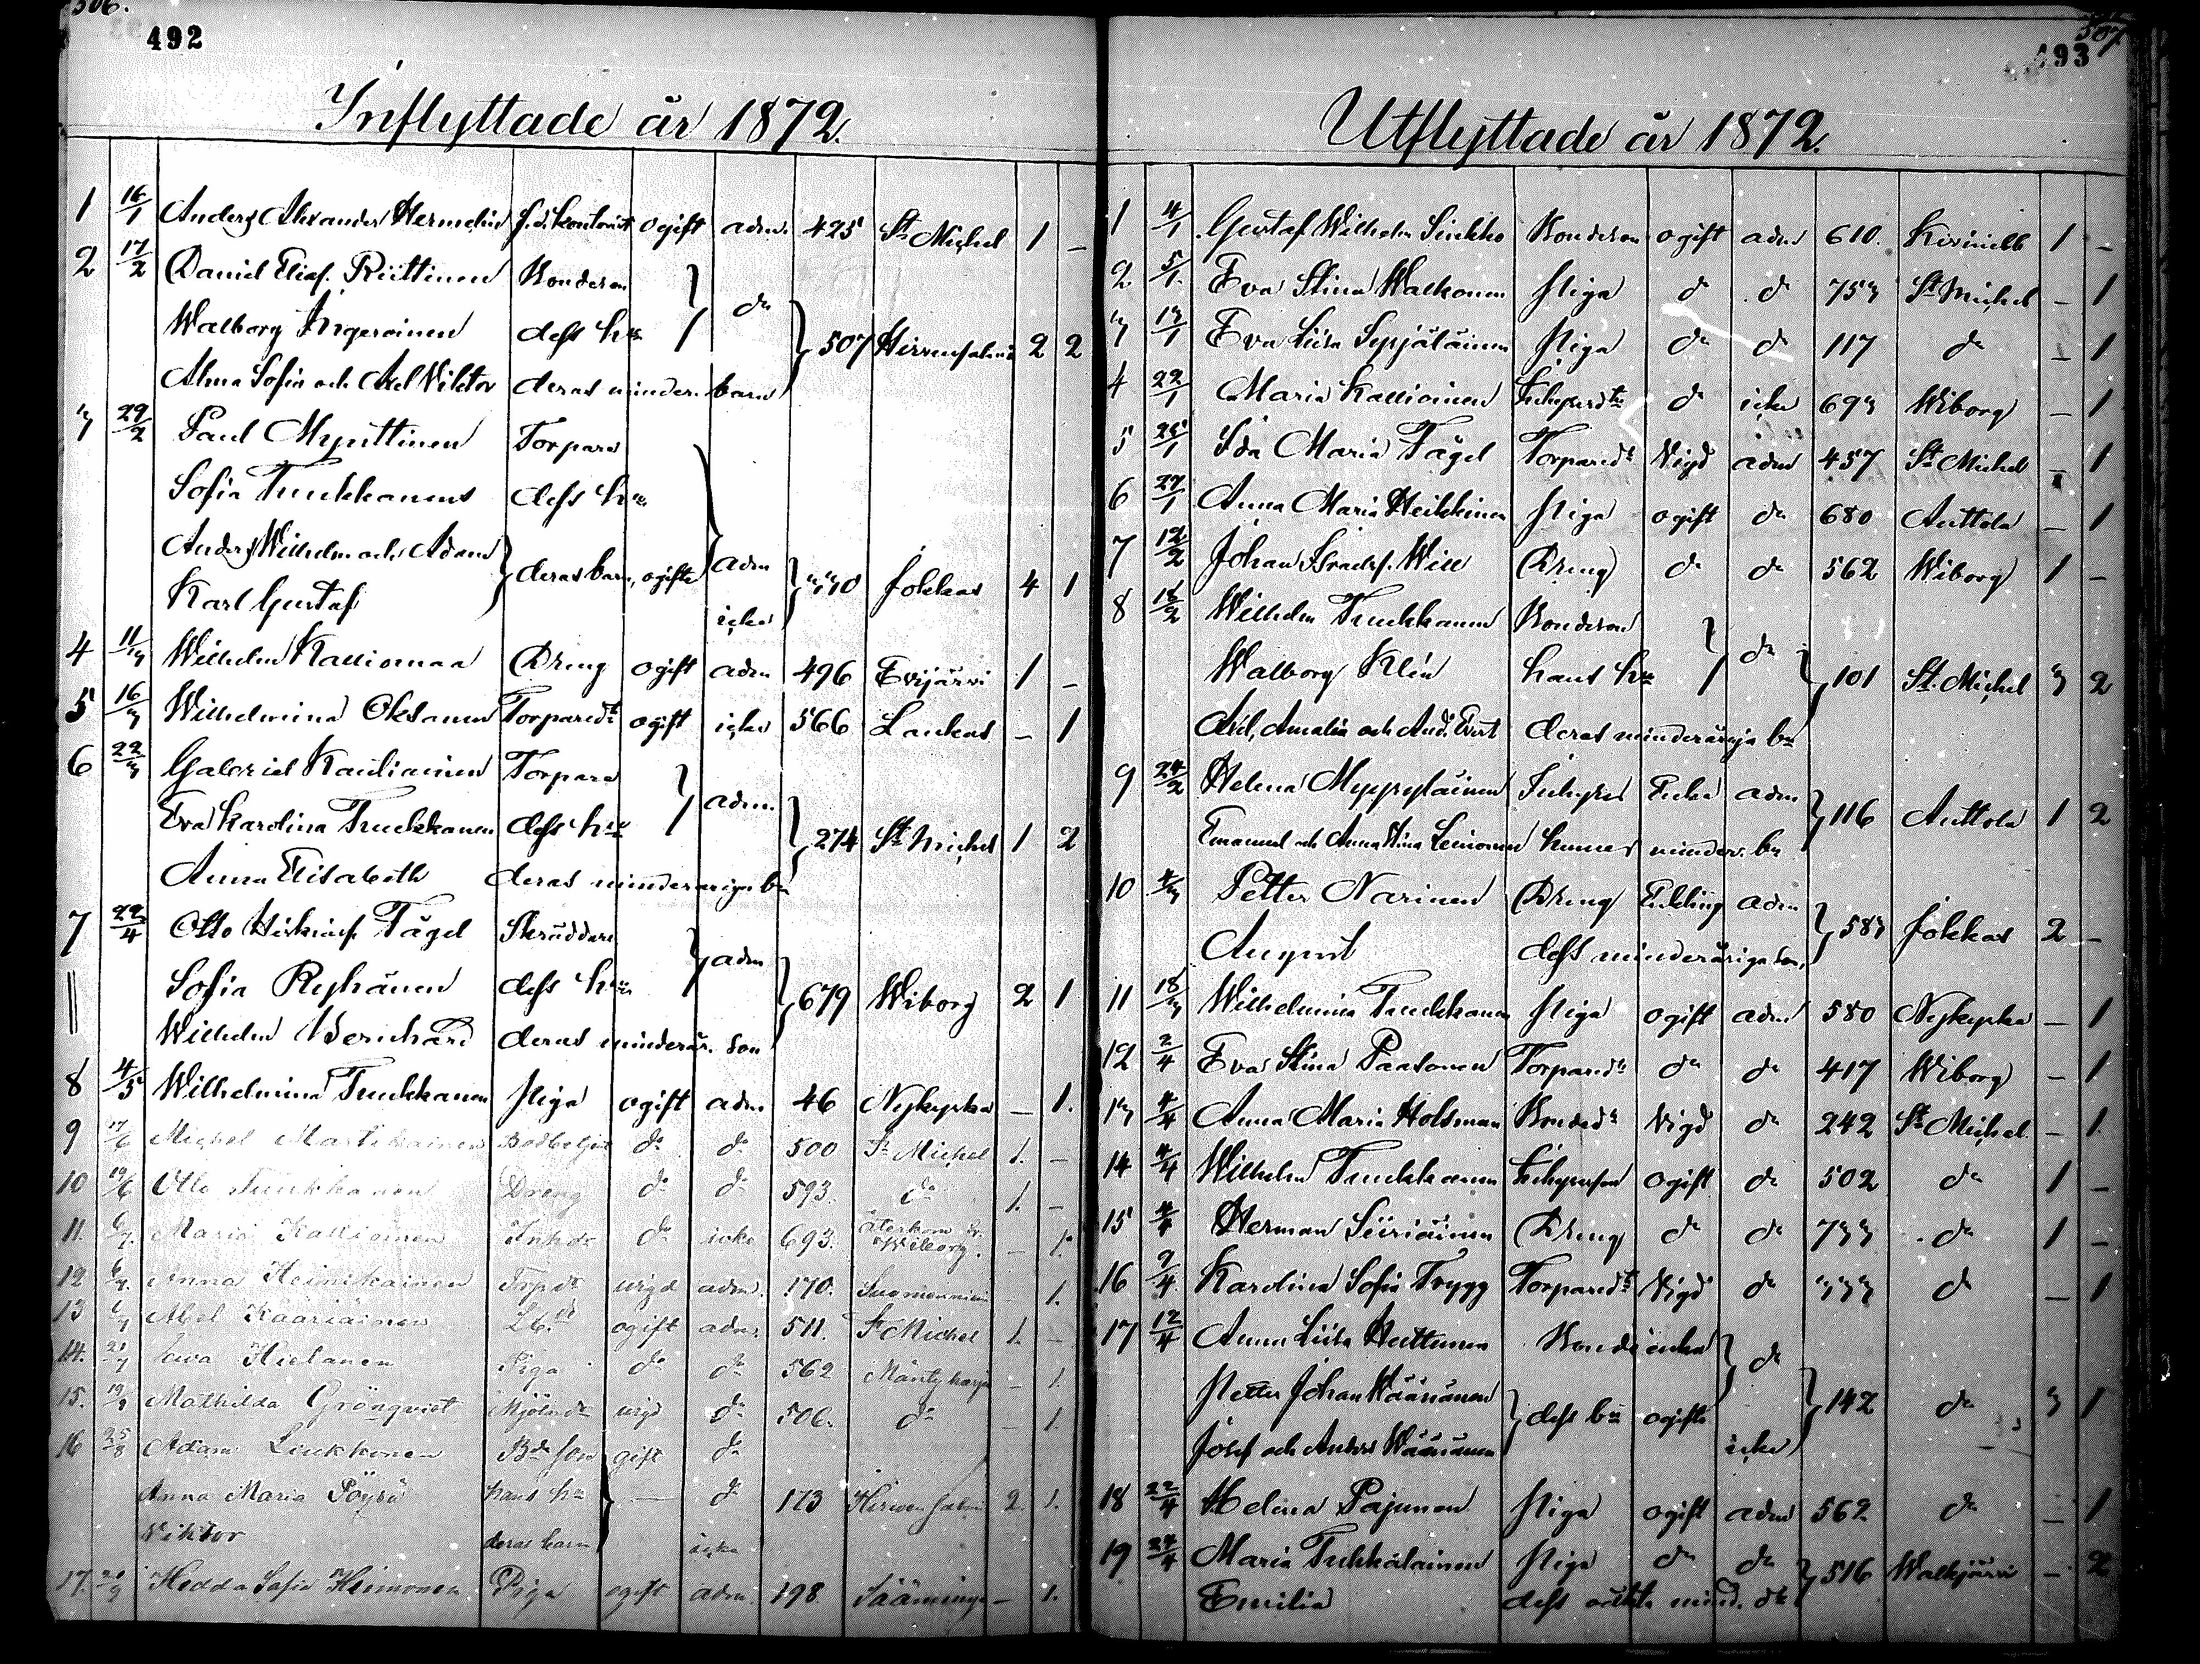 506.
492
Inflyttade år 1872.
1 16/1 Anders Alexander Hermelin f.d. kontorist ogift adm. 425 St Michel 1 _
2 17/2 Daniel Eliaf. Riittinen Bondeson
Walborg Ingeroinen dess hu } do } 507 Hirvensalmi 2 2
Alma Sofia och Axel Viktor deras minder. barn
3 29/2 Paul Mynttinen Torpare
Sofia Truukkanens dess hu
Anders Wilhelm och Adam } deras barn, ogifte adm } 330 Jokkas 4 1
Karl Gustaf icke
4 11/3 Wilhelm Kalliomaa Dreng ogift adm 496 Evijärvi 1 _
5 16/3 Wilhelmina Oksanen Torparedr ogift icke 566 Laukas _ 1
6 22/3 Gabriel Kauliainen Torpare
Eva Karolina Truukkanen dess hu } adm. } 274 St Michel 1 2
Anna Elisabeth deras minderåriga bn
7 22/4 Otto Henrikinf. Tågel Skräddare
Sofia Reyhänen dess hu } adm } 679 Wiborg 2 1
Wilhelm Bernhard deras minderår. son
8 4/5 Wilhelmina Truukkanen Piga ogift adm 46 Nykyrka _ 1.
9 17/6 Michel Martikainen do do 500 St Michel 1. _
10 19/6 Otto Truukkanen Dreng do do 593. do 1. _
11. 6/7. Maria Kallioinen Inhdr do icke 693. återkom fr. Wiborg. _ 1.
12 6/7. Anna Heinikainen Torpdr wigd adm. 170. Suomenniemi 1.
13 Abel Kääriäinen ogift adm. 511. St Michel 1. _
14. 21/7 Ewa Hietanen Piga do do 562 Mäntyharju _ 1.
15. 19/8 Mathilda Grönqvist Mjölndr wigd do 506. do _ 1.
16 25/8 Adam Liukkonen Bde son gift do
Anna Maria Pöyry hans hu — do 173 Hirvensalmi 2. 1.
Viktor deras barn icke
17. 20/9 Hedda Sofia Heimonen Piga ogift adm. 198 Sääminge _ 1.
507
493
Utflyttade år 1872.
1 4/1 Gustaf Wilhelm Sinkko Bondeson ogift adm 610. Kivinebb 1 _
2 5/1. Eva Stina Walkonen Piga do do 753 St Michel _ 1
3 13/1 Eva Liisa Sepjäläinen Piga do do 117 do _ 1
4 22/1 Maria Kallioinen Inhysesdr do icke 693 Wiborg _ 1
5 25/1 Ida Maria Tågel Torparedr Vigd adm 457 St Michel _ 1
6 27/1 Anna Maria Heikkinen Piga ogift do 680 Anttola _ 1
7 12/2 Johan Will Dreng do do 562 Wiborg 1 _
8 18/2 Wilhelm Truukkanen Bondeson
Walborg Klén hans hu } do } 101 St. Michel 3 2
Axel, Amalia och And. Evert deras minderåriga bn
9 24/2 Helena Myyryläinen Inhyses Enka adm } 116 Anttola 1 2
Emanuel och Anna Stina Leinonen hennes minder. bn
10 4/3 Petter Narinen Dreng Enkling adm } 583 Jokkas 2 _
August dess minderåriga son,
11 18/3 Wilhelmina Truukkanen Piga ogift adm 580 Nykyrka _ 1
12 2/4 Eva Stina Paasonen Torparedr do do 417 Wiborg _ 1
13 4/4 Anna Maria Holsman Bondedr Vigd do 242 St Michel _ 1
14 4/4 Wilhelm Truukkanen Inhysesson ogift do 502 do 1 _
15 4/4 Herman Siiriäinen Dreng do do 733 do 1 _
16 9/4 Karolina Sofia Trygg Torparedr Vigd do 333 do _ 1
17 12/4 Anna Liisa Huttunen Bonde enka } do
Petter Johan Wäänänen } dess bn ogifta } 142 do 3 1
Josef och Anders Wäänänen icke
18 22/4 Helena Pajunen Piga ogift adm 562 do _ 1
19 24/4 Maria Tuhkalainen Piga do do } 516 Walkjärvi _ 2
Emilia dess oäkta mind. dr